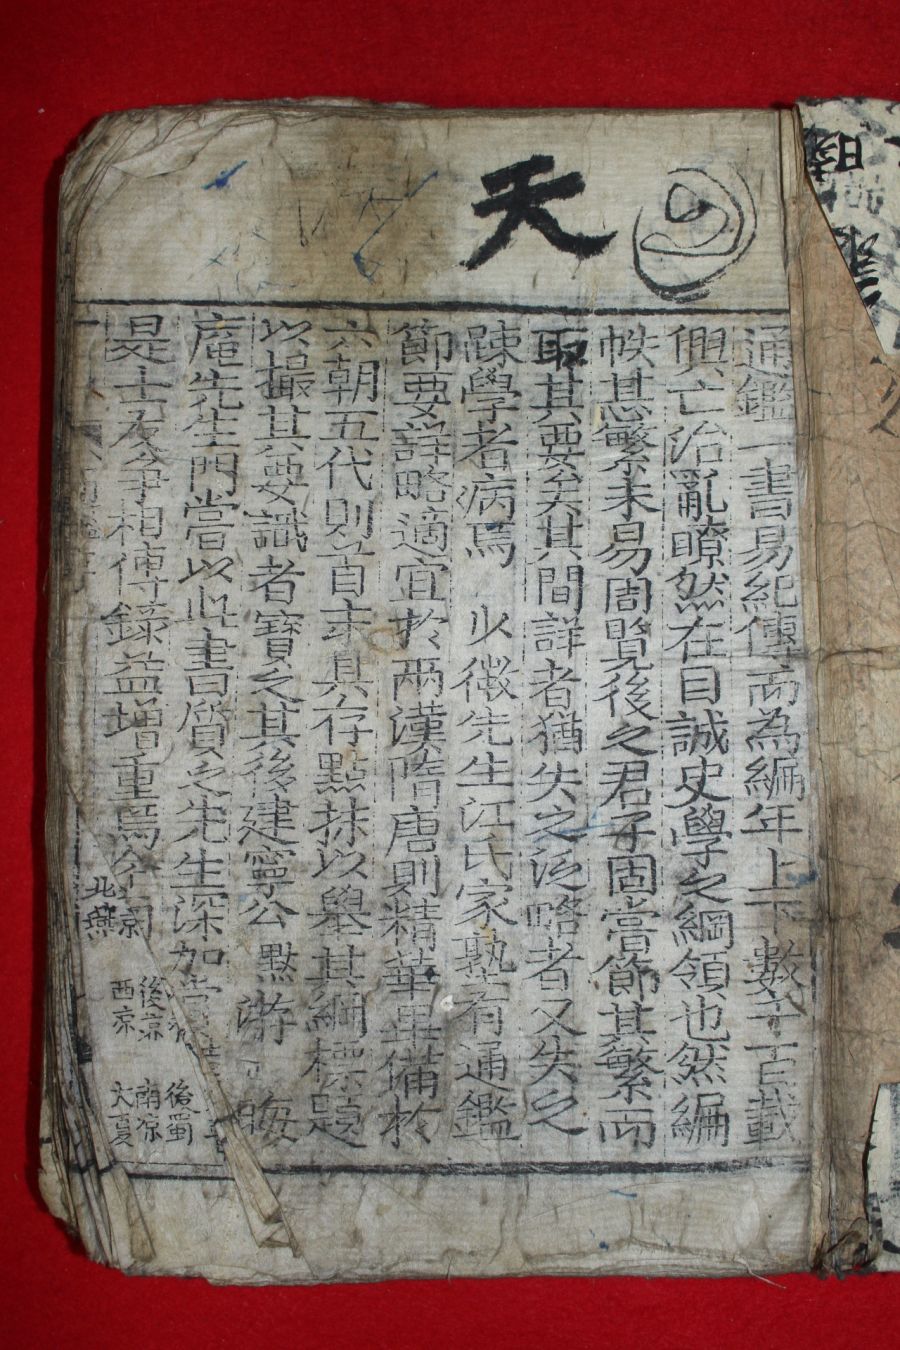 天
通鑑一書易紀傳而為編年上下數千百載
興亡治亂瞭然在目誠史學之綱領也然編
帙甚繁未易周覽後之君子固嘗節其繁而
取其要矣其間詳者猶失之泛略者又失之
踈學者病焉 少微先生江氏家塾有通鑑
節要詳略適宜於兩漢隋唐則精華畢備於
六朝五代則首末具存點抹以舉其綱標題
以撮其要識者寶之其後建寧公默游 晦
庵先生門嘗以此書質之先生深加
是士友爭相傳錄益增重焉今
後蜀
後涼 南涼
北燕 西涼 大夏